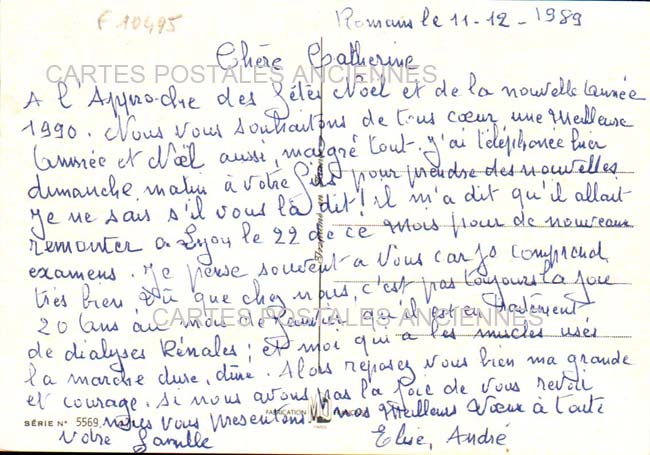 F 10495
Romans le 11-12-1989
Chère Catherine
CARTES POSTALES ANCIENNES
A l'Approche des fêtes Noël et de la nouvelle année
1990. Nous vous souhaitons de tous cœur une Meilleure
année et Noël aussi, malgré tout. J'ai téléphonée hier
dimanche matin à votre fils pour prendre des nouvelles
Je ne sais s'il vous l'a dit! il m'a dit qu'il allait
remonter a Lyon le 22 de ce mois pour de nouveaux
examens. Je pense souvent a vous car je comprend
très bien que chez nous, c'est pas toujours la joie
20 ans au mois de Janvier qu'il est en traitement
CARTES POSTALES ANCIENNES
de dialyses Rénales; et moi qui a les muscles usés
la marche dure, dure. Alors reposez vous bien ma grande
et courage. Si nous avons pas la Joie de vous revoir
nous vous presentons nos Meilleurs Vœux à toute
FABRICATION
SÉRIE N° 5569
Votre famille
Elise, André